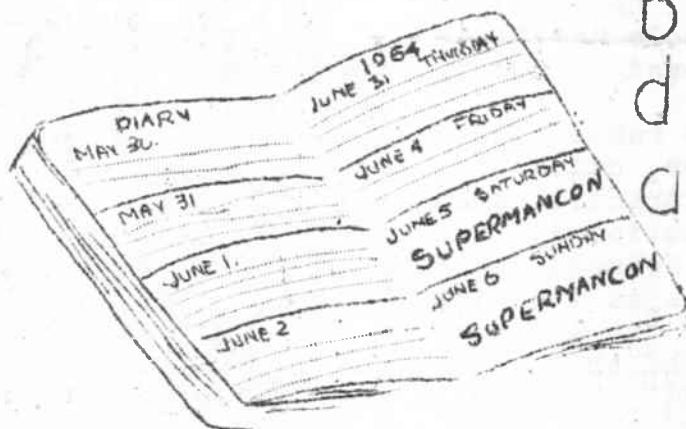 DIARY
MAY 30.
MAY 31
JUNE 1.
JUNE 2
1964
JUNE 31 THURSDAY
JUNE 4 FRIDAY
JUNE 5 SATURDAY
SUPERMANCON
JUNE 6 SUNDAY
SUPERMANCON
b
d
d